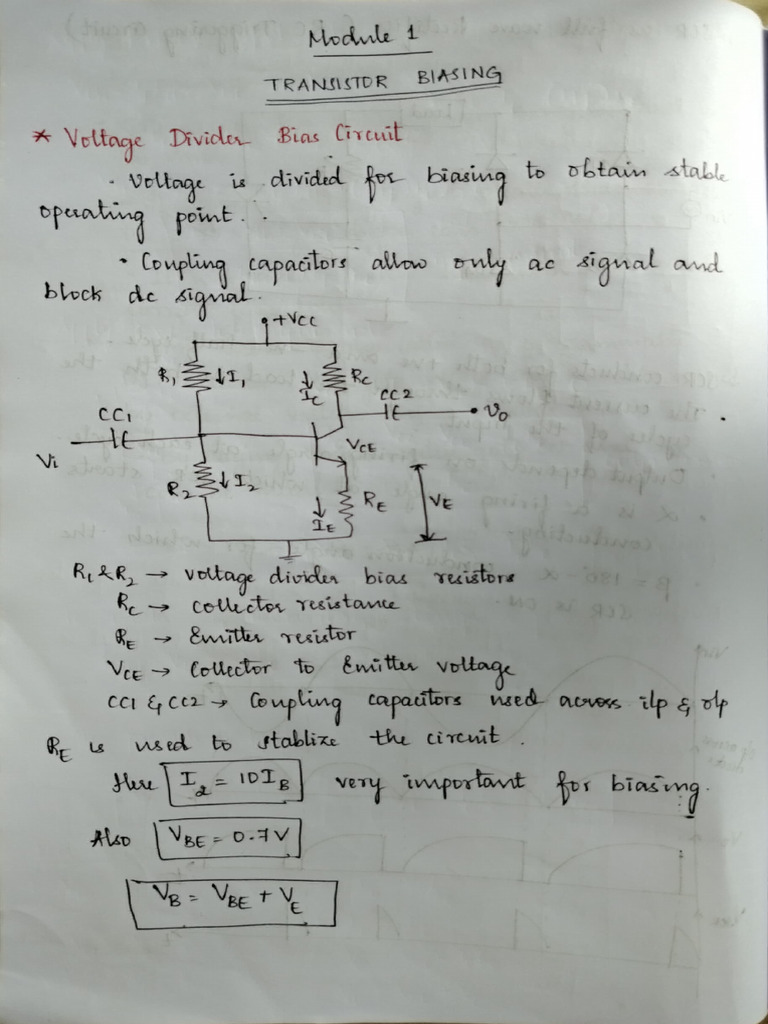 Module 1
TRANSISTOR BIASING
* Voltage Divider Bias Circuit
· Voltage is divided for biasing to obtain stable
operating point.
· Coupling capacitors allow only ac signal and
block dc signal.
+VCC
R1 ↓I1 ↓IC RC
CC1 CC2 Vo
Vi VCE
R2 ↓I2 ↓IE RE VE
R1 & R2 → voltage divider bias resistors
RC → collector resistance
RE → Emitter resistor
VCE → Collector to Emitter voltage
CC1 & CC2 → Coupling capacitors used across i/p & o/p
RE is used to stablize the circuit.
Here I2 = 10IB very important for biasing.
Also VBE = 0.7V
VB = VBE + VE